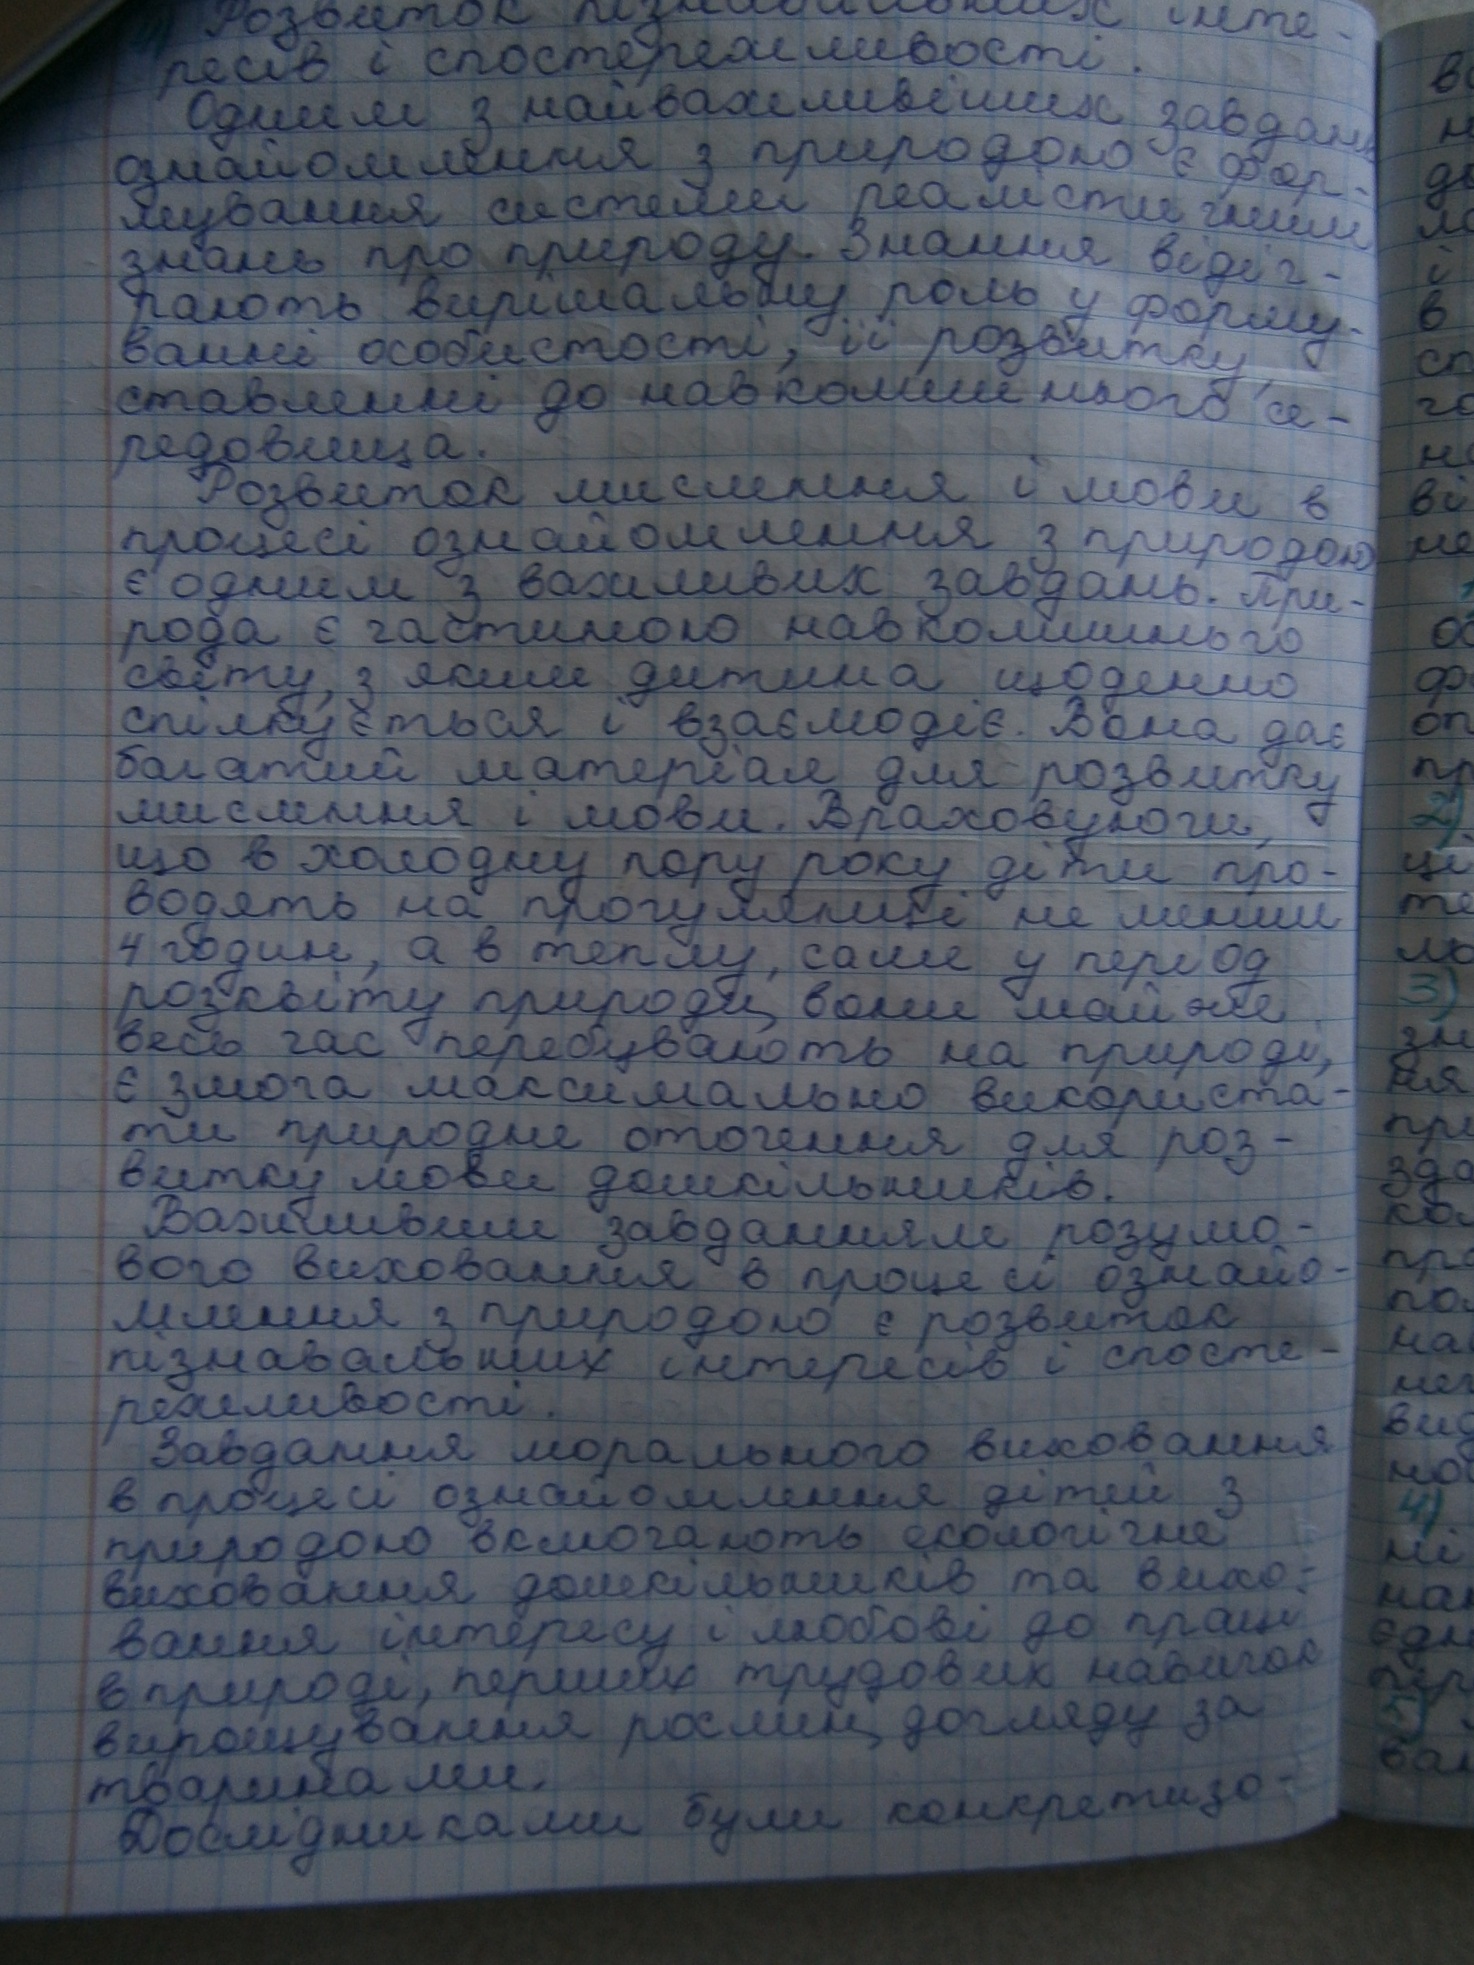 Розвиток пізнавальних інте-
ресів і спостережливості.
Одним з найважливіших завдань
ознайомлення з природою є фор-
мування системи реалістичних
знань про природу. Знання відіг-
рають вирішальну роль у форму-
ванні особистості, її розвитку,
ставленні до навколишнього се-
редовища.
Розвиток мислення і мови в
процесі ознайомлення з природою
є одним з важливих завдань. При-
рода є частиною навколишнього
світу, з яким дитина щоденно
спілкується і взаємодіє. Вона дає
багатий матеріал для розвитку
мислення і мови. Враховуючи,
що в холодну пору року діти про-
водять на прогулянці не менше
4 годин, а в теплу, саме у період
розквіту природи, вони майже
весь час перебувають на природі,
є змога максимально використа-
ти природне оточення для роз-
витку мови дошкільників.
Важливим завданням розумо-
вого виховання в процесі ознайо-
млення з природою є розвиток
пізнавальних інтересів і спосте-
режливості.
Завдання морального виховання
в процесі ознайомлення дітей з
природою вкмогають екологічне
виховання дошкільників та вихо-
вання інтересу і любові до праці
в природі, перших трудових навичок
вирощування рослин, догляду за
тваринами.
Дослідниками були конкретизо-
2)
3)
4)
5)